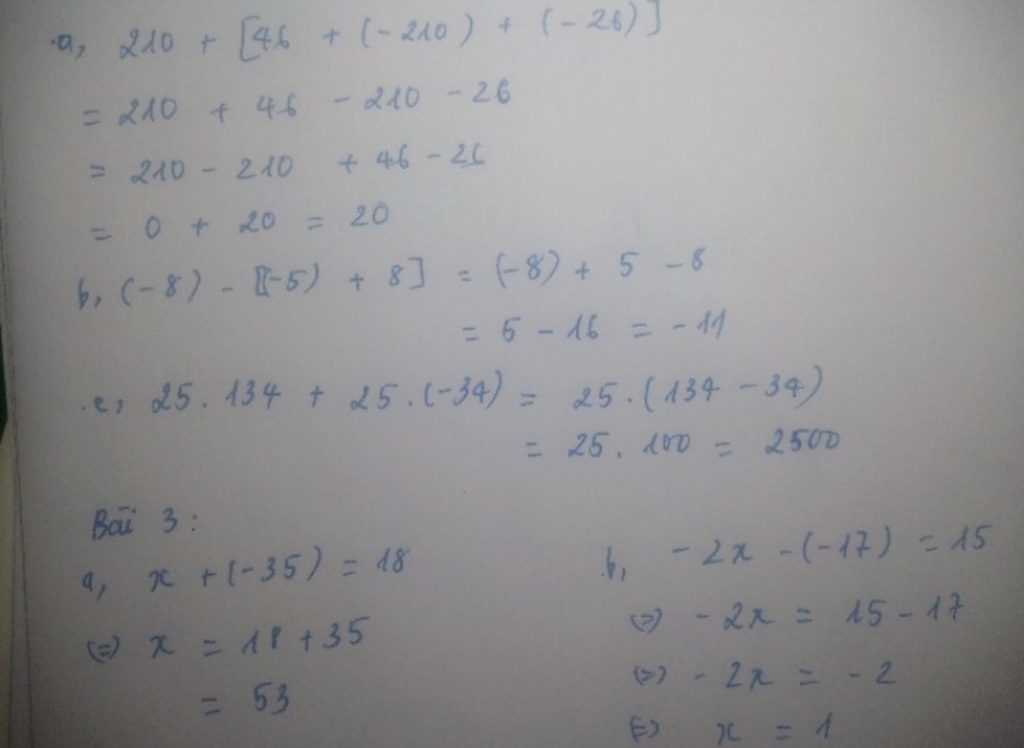 a, 210 + [46 + (-210) + (-26)]
= 210 + 46 - 210 - 26
= 210 - 210 + 46 - 26
= 0 + 20 = 20
b, (-8) - [(-5) + 8] = (-8) + 5 - 8
= 5 - 16 = -11
c, 25.134 + 25.(-34) = 25.(134 - 34)
= 25.100 = 2500
Bài 3:
a, x + (-35) = 18
(=) x = 18 + 35
= 53
b, -2x - (-17) = 15
(=) -2x = 15 - 17
(=) -2x = -2
(=) x = 1